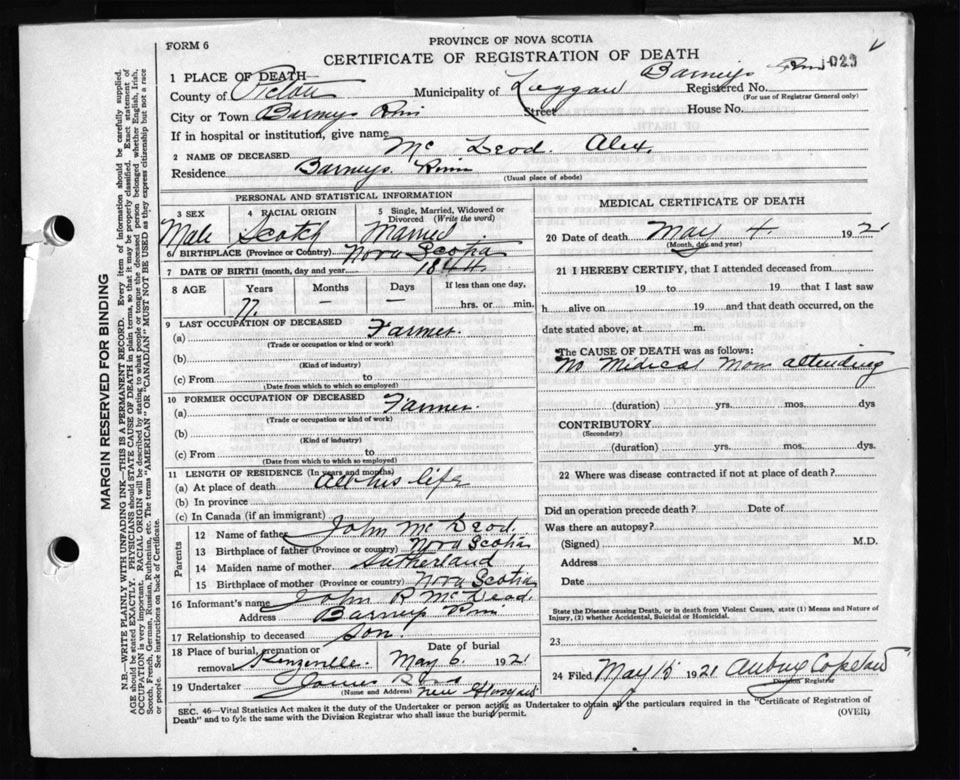 FORM 6
PROVINCE OF NOVA SCOTIA
CERTIFICATE OF REGISTRATION OF DEATH
1 PLACE OF DEATH Barneys 029
County of Pictou Municipality of Registered No.
(For use of Registrar General only)
City or Town Barneys Street House No.
If in hospital or institution, give name
2 NAME OF DECEASED Mc Leod. Alex.
Residence Barneys.
(Usual place of abode)
PERSONAL AND STATISTICAL INFORMATION
3 SEX 4 RACIAL ORIGIN 5 Single, Married, Widowed or Divorced (Write the word)
Male Scotch Married
6 BIRTHPLACE (Province or Country) Nova Scotia
7 DATE OF BIRTH (month, day and year) 1844.
8 AGE Years Months Days If less than one day,
77. — — hrs. or min.
9 LAST OCCUPATION OF DECEASED
(a) Farmer.
(Trade or occupation or kind or work)
(b)
(Kind of industry)
(c) From to
(Date from which to which so employed)
10 FORMER OCCUPATION OF DECEASED
(a) Farmer.
(Trade or occupation or kind of work)
(b)
(Kind of industry)
(c) From to
(Date from which to which so employed)
11 LENGTH OF RESIDENCE (In years and months)
(a) At place of death All his life
(b) In province
(c) In Canada (if an immigrant)
Parents
12 Name of father John Mc Leod.
13 Birthplace of father (Province or country) Nova Scotia
14 Maiden name of mother. Sutherland
15 Birthplace of mother (Province or country) Nova Scotia
16 Informant's name John R McLeod.
Address Barneys
17 Relationship to deceased Son.
18 Place of burial, cremation or removal Date of burial
May 6. 1921
19 Undertaker James
(Name and Address) New Glasgow
MEDICAL CERTIFICATE OF DEATH
20 Date of death May 4. 1921
(Month, day and year)
21 I HEREBY CERTIFY, that I attended deceased from
19 to 19 that I last saw
h alive on 19 and that death occurred, on the
date stated above, at m.
The CAUSE OF DEATH was as follows:
No Medical Man attending
(duration) yrs. mos. dys
CONTRIBUTORY
(Secondary)
(duration) yrs. mos. dys.
22 Where was disease contracted if not at place of death?
Did an operation precede death? Date of
Was there an autopsy?
(Signed) M.D.
Address
Date
State the Disease causing Death, or in death from Violent Causes, state (1) Means and Nature of
Injury, (2) whether Accidental, Suicidal or Homicidal.
23
24 Filed May 15 1921
Division Registrar
SEC. 46—Vital Statistics Act makes it the duty of the Undertaker or person acting as Undertaker to obtain all the particulars required in the "Certificate of Registration of
Death" and to fyle the same with the Division Registrar who shall issue the burial permit. (OVER)
MARGIN RESERVED FOR BINDING
N.B.—WRITE PLAINLY WITH UNFADING INK—THIS IS A PERMANENT RECORD. Every item of information should be carefully supplied.
AGE should be stated EXACTLY. PHYSICIANS should STATE CAUSE OF DEATH in plain terms, so that it may be properly classified. Exact statement of
OCCUPATION is very important. RACIAL ORIGIN will be described by stating to what people or tongue the deceased person belonged whether English, Irish,
Scotch, French, German, Russian, Ruthenian, etc. The terms "AMERICAN" OR "CANADIAN" MUST NOT BE USED as they express citizenship but not a race
or people. See instructions on back of Certificate.